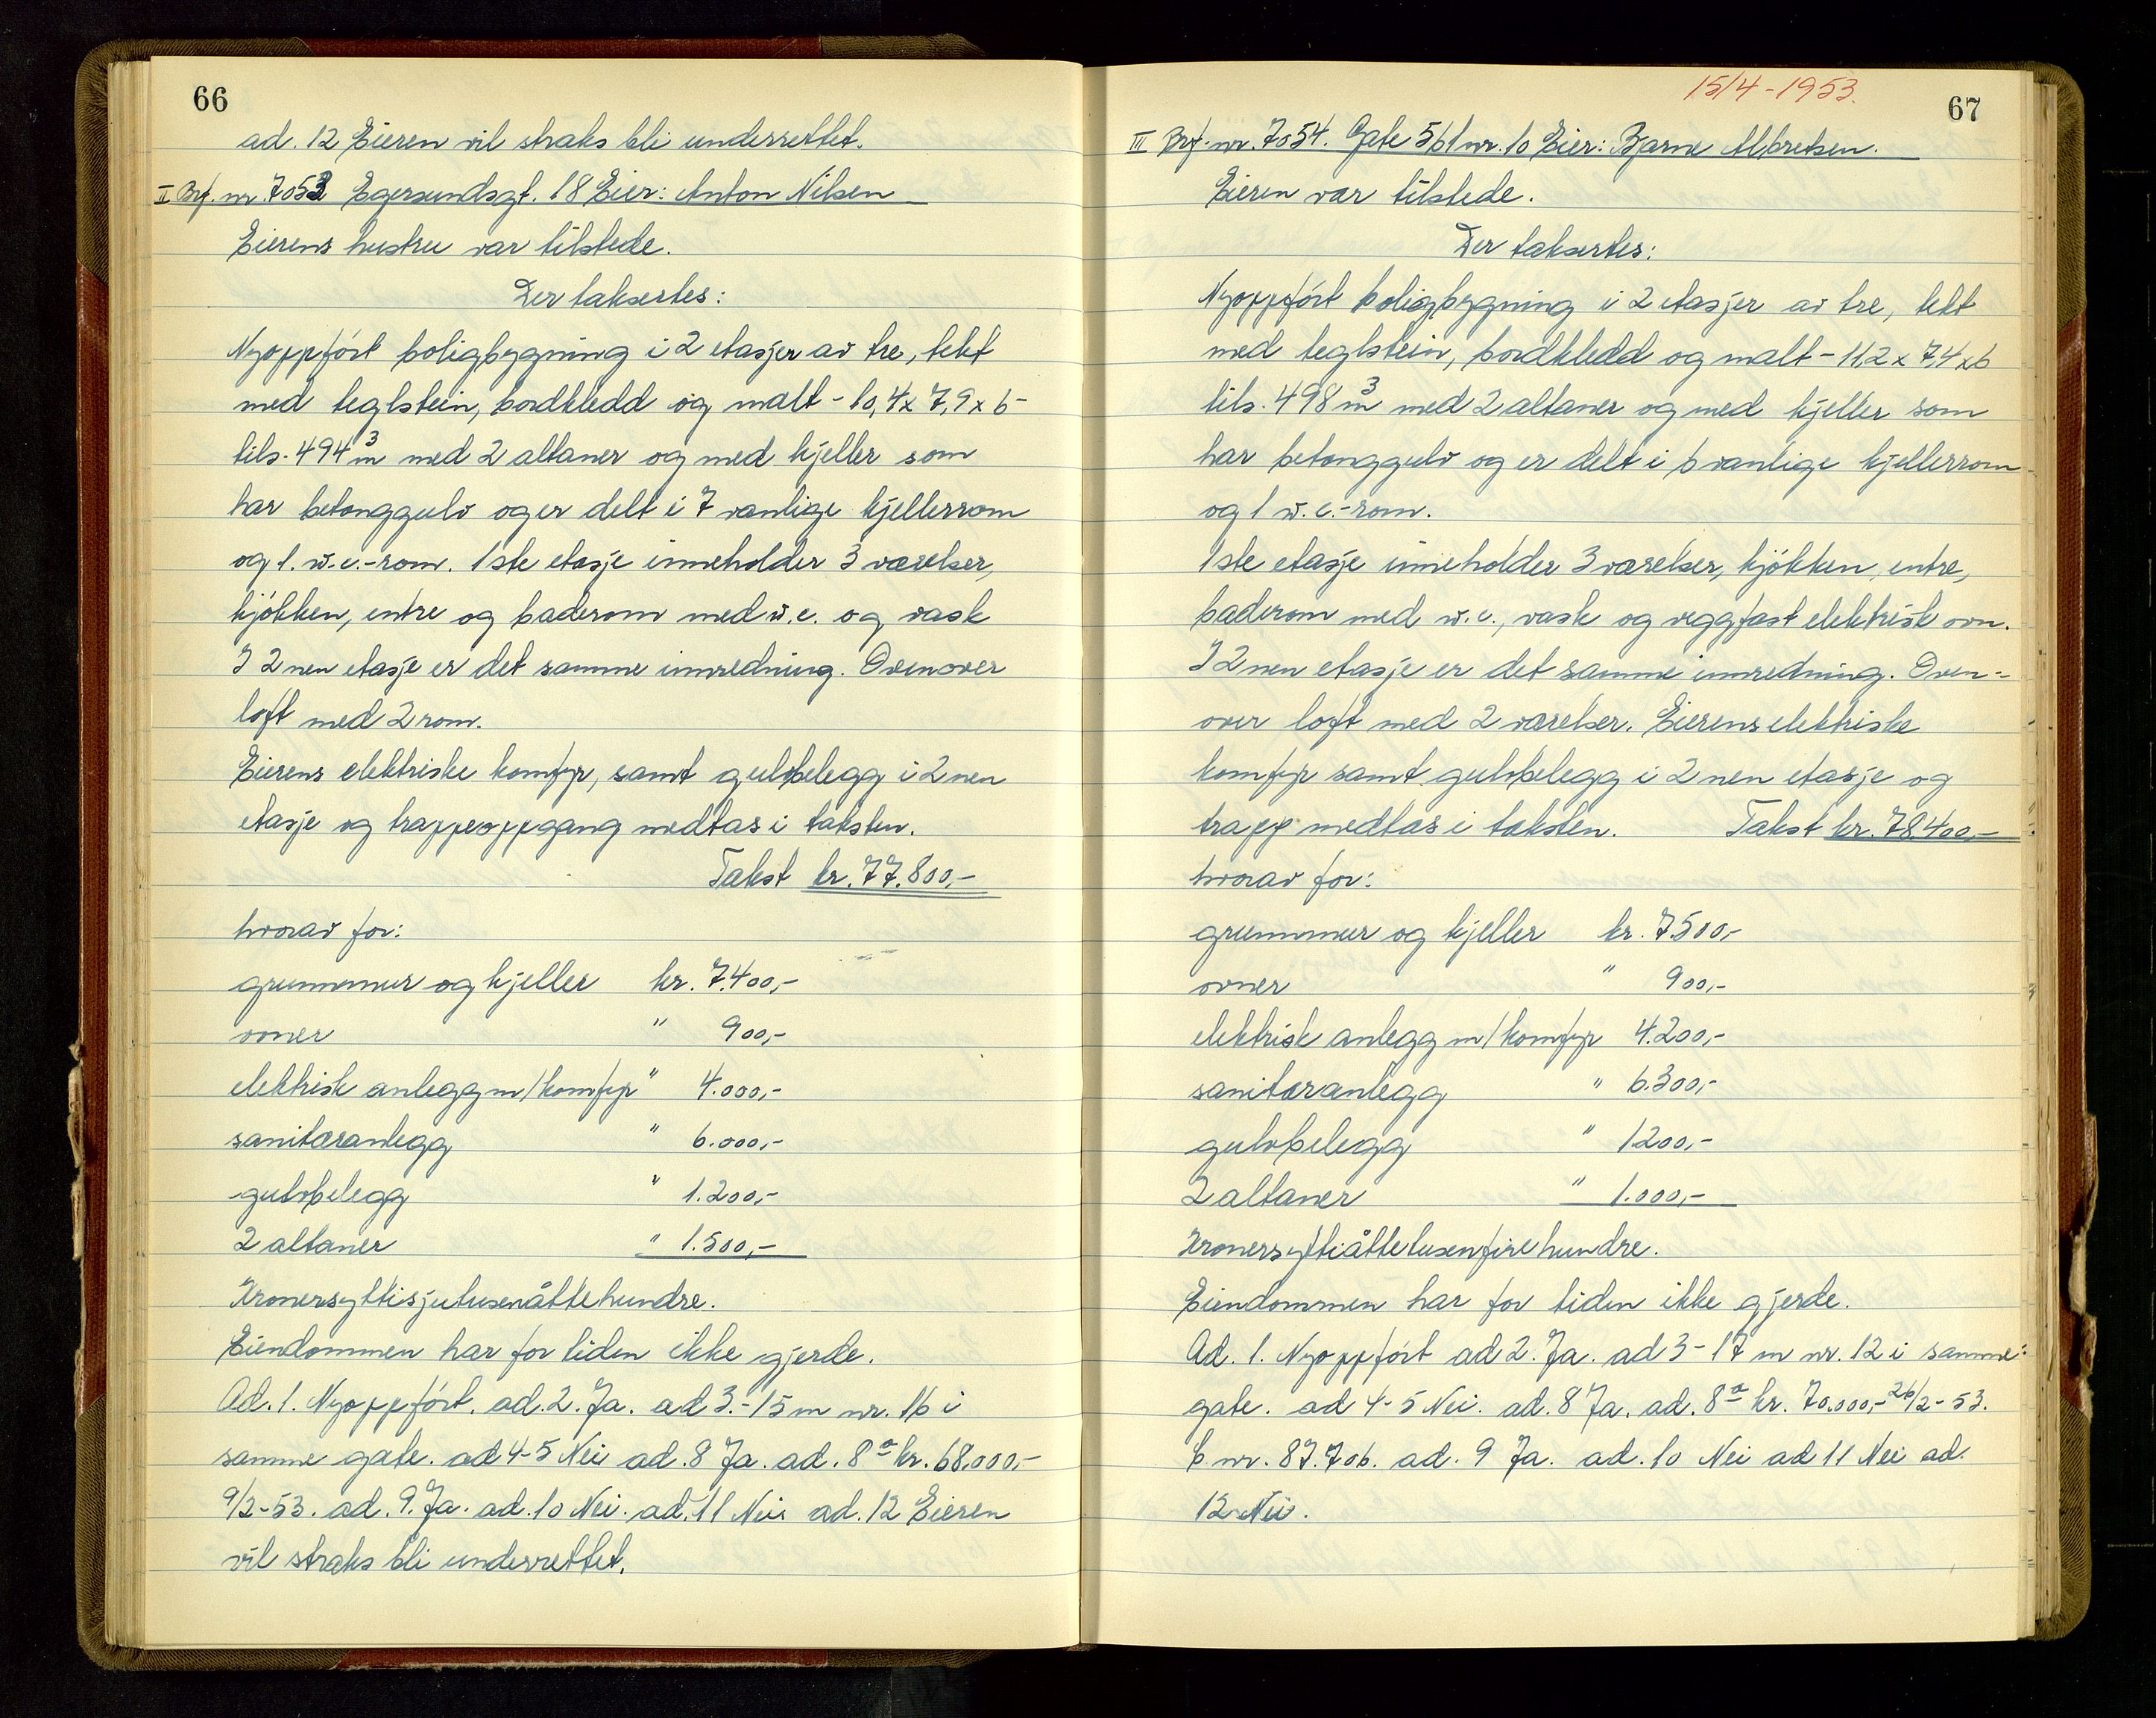 66
ad. 12 Eieren vil straks bli underrettet.
II Brf. nr. 7053 Egersundsgt. 18 Eier: Anton Nilsen
Eierens hustru var tilstede.
Der takseres:
Nyoppført boligbygning i 2 etasjer av tre, tekt
med teglstein, bordkledd og malt - 10,4 x 7,9 x 6 -
tils. 494 m³ med 2 altaner og med kjeller som
har betonggulv og er delt i 7 vanlige kjellerrom
og 1. w.c.-rom. 1ste etasje inneholder 3 værelser,
kjøkken, entre og baderom med w.c. og vask
I 2nen etasje er det samme innredning. Ovenover
loft med 2 rom.
Eierens elektriske komfyr, samt gulvbelegg i 2nen
etasje og trappeoppgang medtas i taksten.
Takst kr. 77.800,-
hvorav for:
grunnmur og kjeller kr. 7.400,-
ovner " 900,-
elektrisk anlegg m/komfyr " 4.000,-
sanitæranlegg " 6.000,-
gulvbelegg " 1.200,-
2 altaner " 1.500,-
Kronersyttisjutusenåttehundre.
Eiendommen har for tiden ikke gjerde.
Ad. 1. Nyoppført. ad. 2. Ja. ad 3. - 15 m nr. 16 i
samme gate. ad 4-5 Nei ad. 8 Ja. ad. 8ª kr. 68.000,-
9/2-53. ad. 9. Ja. ad. 10 Nei. ad. 11 Nei ad. 12 Eieren
vil straks bli underrettet.
15/4-1953.
67
III Brf. nr. 7054. Gate 561 nr. 10 Eier: Bjarne Albretsen.
Eieren var tilstede.
Der taksertes:
Nyoppført boligbygning i 2 etasjer av tre, tekt
med teglstein, bordkledd og malt - 11,2 x 7,4 x 6
tils. 498 m³ med 2 altaner og med kjeller som
har betonggulv og er delt i 6 vanlige kjellerrom
og 1 w.c.-rom.
1ste etasje inneholder 3 værelser, kjøkken, entre,
baderom med w.c., vask og veggfast elektrisk ovn.
I 2nen etasje er det samme innredning. Oven-
over loft med 2 værelser. Eierens elektriske
komfyr samt gulvbelegg i 2nen etasje og
trapp medtas i taksten. Takst kr. 78.400,-
hvorav for:
grunnmur og kjeller kr. 7.500,-
ovner " 900,-
elektrisk anlegg m/komfyr 4.200,-
sanitæranlegg " 6.300,-
gulvbelegg " 1200,-
2 altaner " 1.000,-
Kronersyttiåttetusenfirehundre.
Eiendommen har for tiden ikke gjerde.
Ad. 1. Nyoppført ad 2. Ja. ad 3 - 17 m nr. 12 i samme
gate. ad 4-5 Nei. ad. 8 Ja. ad. 8ª kr. 70.000,- 26/2-53.
b nr. 87.706. ad. 9 Ja. ad. 10 Nei ad 11 Nei ad.
12 Nei.